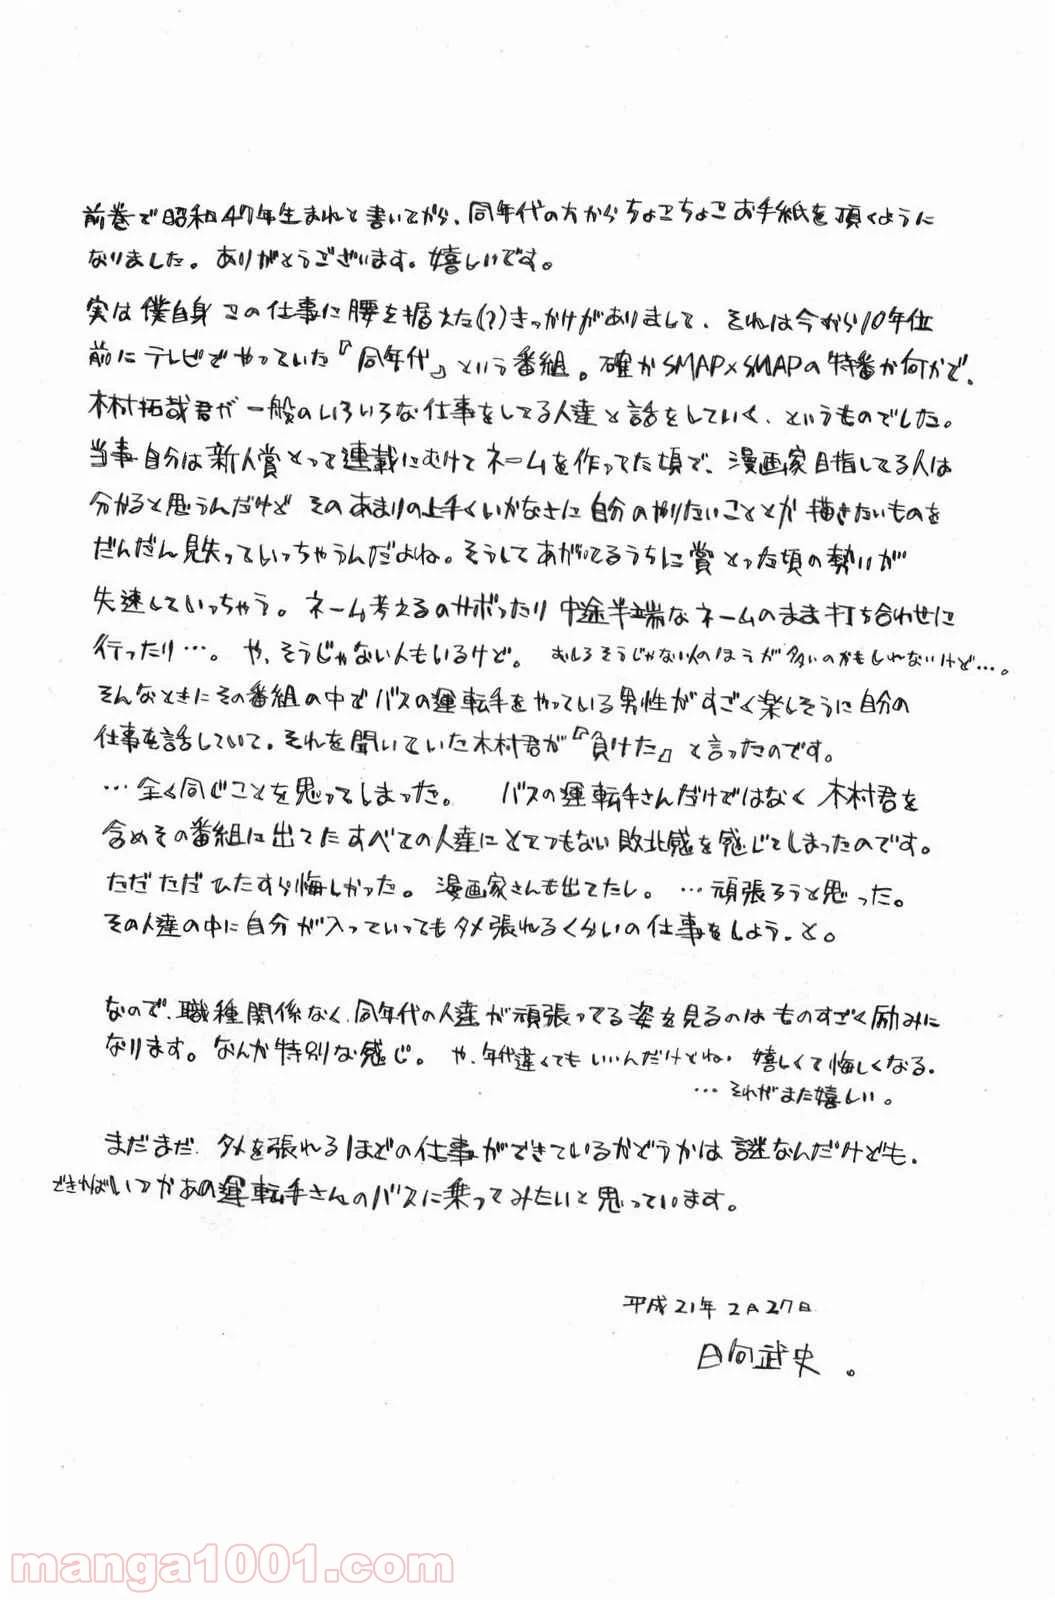 前巻で昭和47年生まれと書いてから、同年代の方からちょこちょこお手紙を頂くように
なりました。ありがとうございます。嬉しいです。
実は僕自身この仕事に腰を据えた(?)きっかけがありまして、それは今から10年位
前にテレビでやっていた『同年代』という番組。確かSMAP×SMAPの特番か何かで、
木村拓哉君が一般のいろいろな仕事をしてる人達と話をしていく、というものでした。
当事自分は新人賞とって連載にむけてネームを作ってた頃で、漫画家目指してる人は
分かると思うんだけど そのあまりの上手くいかなさに自分のやりたいこととか描きたいものを
だんだん見失っていっちゃうんだよね。そうしてあがいてるうちに賞とった頃の勢いが
失速していっちゃう。ネーム考えるのサボったり中途半端なネームのまま打ち合わせに
行ったり…。や、そうじゃない人もいるけど。むしろそうじゃない人のほうが多いのかもしれないけど…。
そんなときにその番組の中でバスの運転手をやっている男性がすごく楽しそうに自分の
仕事を話していて、それを聞いていた木村君が『負けた』と言ったのです。
…全く同じことを思ってしまった。 バスの運転手さんだけではなく木村君を
含めその番組に出てたすべての人達にとてつもない敗北感を感じてしまったのです。
ただただひたすら悔しかった。漫画家さんも出てたし。…頑張ろうと思った。
その人達の中に自分が入っていってもタメ張れるくらいの仕事をしよう。と。
なので、職種関係なく、同年代の人達が頑張ってる姿を見るのはものすごく励みに
なります。なんか特別な感じ。や、年代違くてもいいんだけどね。嬉しくて悔しくなる。
…それがまた嬉しい。
まだまだ、タメを張れるほどの仕事ができているかどうかは謎なんだけども、
できればいつかあの運転手さんのバスに乗ってみたいと思っています。
平成21年2月27日
日向武史。
manga1001.com